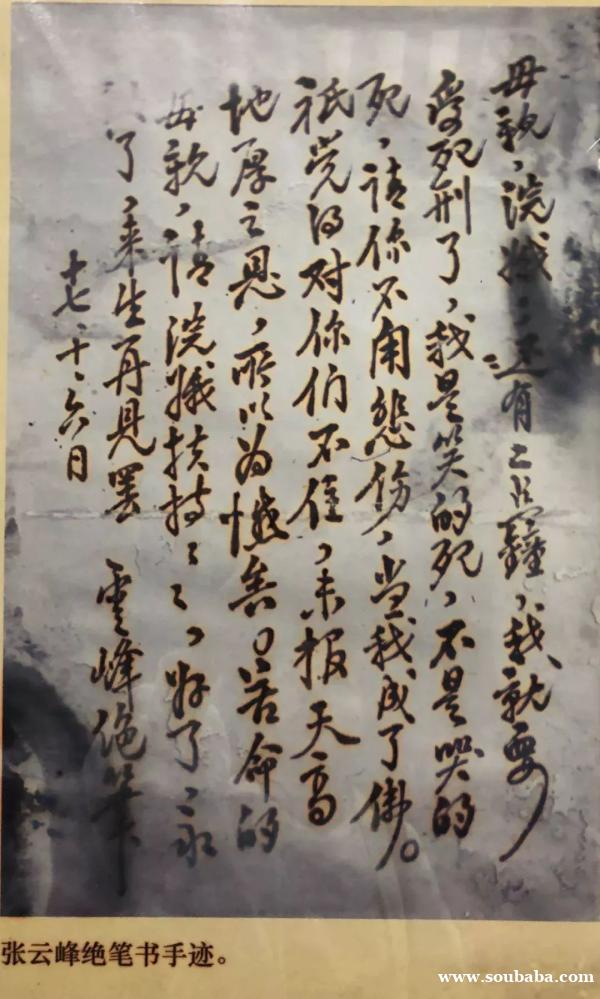 母親、浣娥：还有二点鐘、我就要
受死刑了、我是笑的死、不是哭的
死、請你不用悲伤、当我成了佛。
祇覚得对你们不住、未报天高
地厚之恩、所以为憾矣。苦命的
母親、請浣娥扶持々々、好了、永
了、来生再見罢 雲峰绝筆
十七、十、六日
张云峰绝笔书手迹。
www.soubaba.com